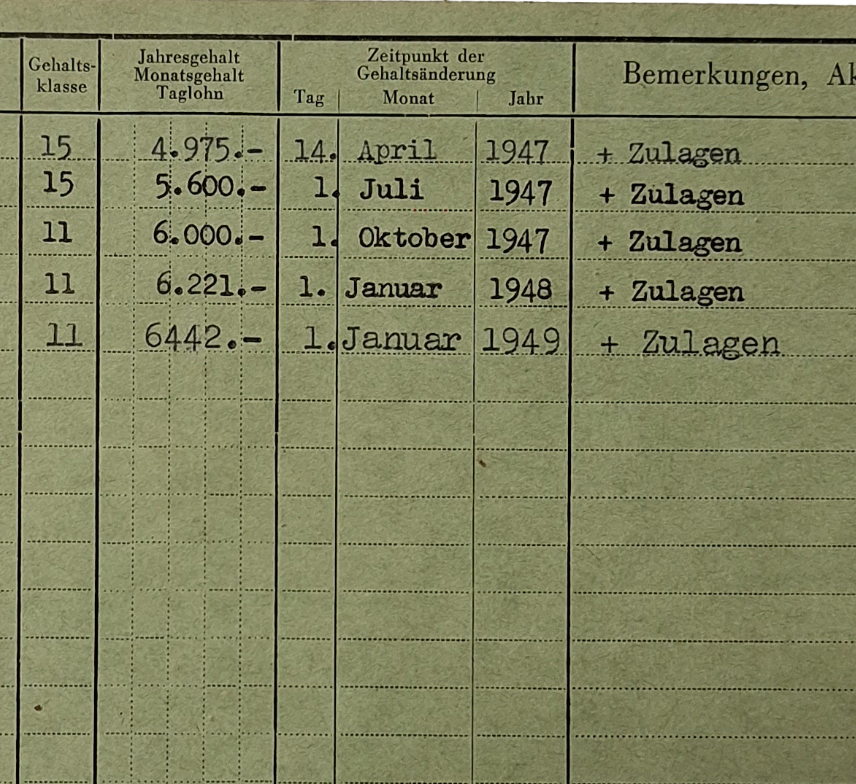 Gehalts-
klasse
Jahresgehalt
Monatsgehalt
Taglohn
Zeitpunkt der
Gehaltsänderung
Tag Monat Jahr
Bemerkungen,
15 4.975.- 14. April 1947 + Zulagen
15 5.600.- 1. Juli 1947 + Zulagen
11 6.000.- 1. Oktober 1947 + Zulagen
11 6.221.- 1. Januar 1948 + Zulagen
11 6442.- 1. Januar 1949 + Zulagen